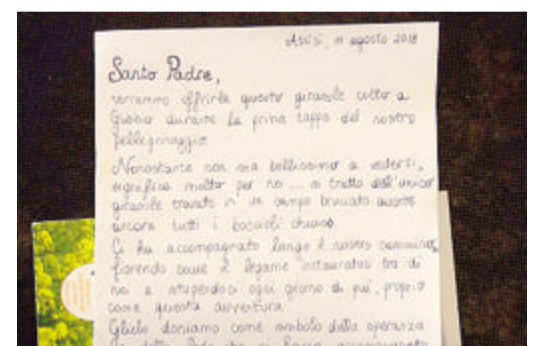 Assisi, 11 agosto 2018
Santo Padre,
vorremmo offrirle questo girasole colto a
Gubbio durante la prima tappa del nostro
pellegrinaggio
Nonostante non sia bellissimo a vedersi,
significa molto per noi ... si tratta dell'unico
girasole trovato in un campo bruciato avente
ancora tutti i boccioli chiusi
Ci ha accompagnato lungo il nostro cammino,
fiorendo come il legame instauratosi tra di
noi e stupendoci ogni giorno di più, proprio
come questa avventura.
Glielo doniamo come simbolo della speranza